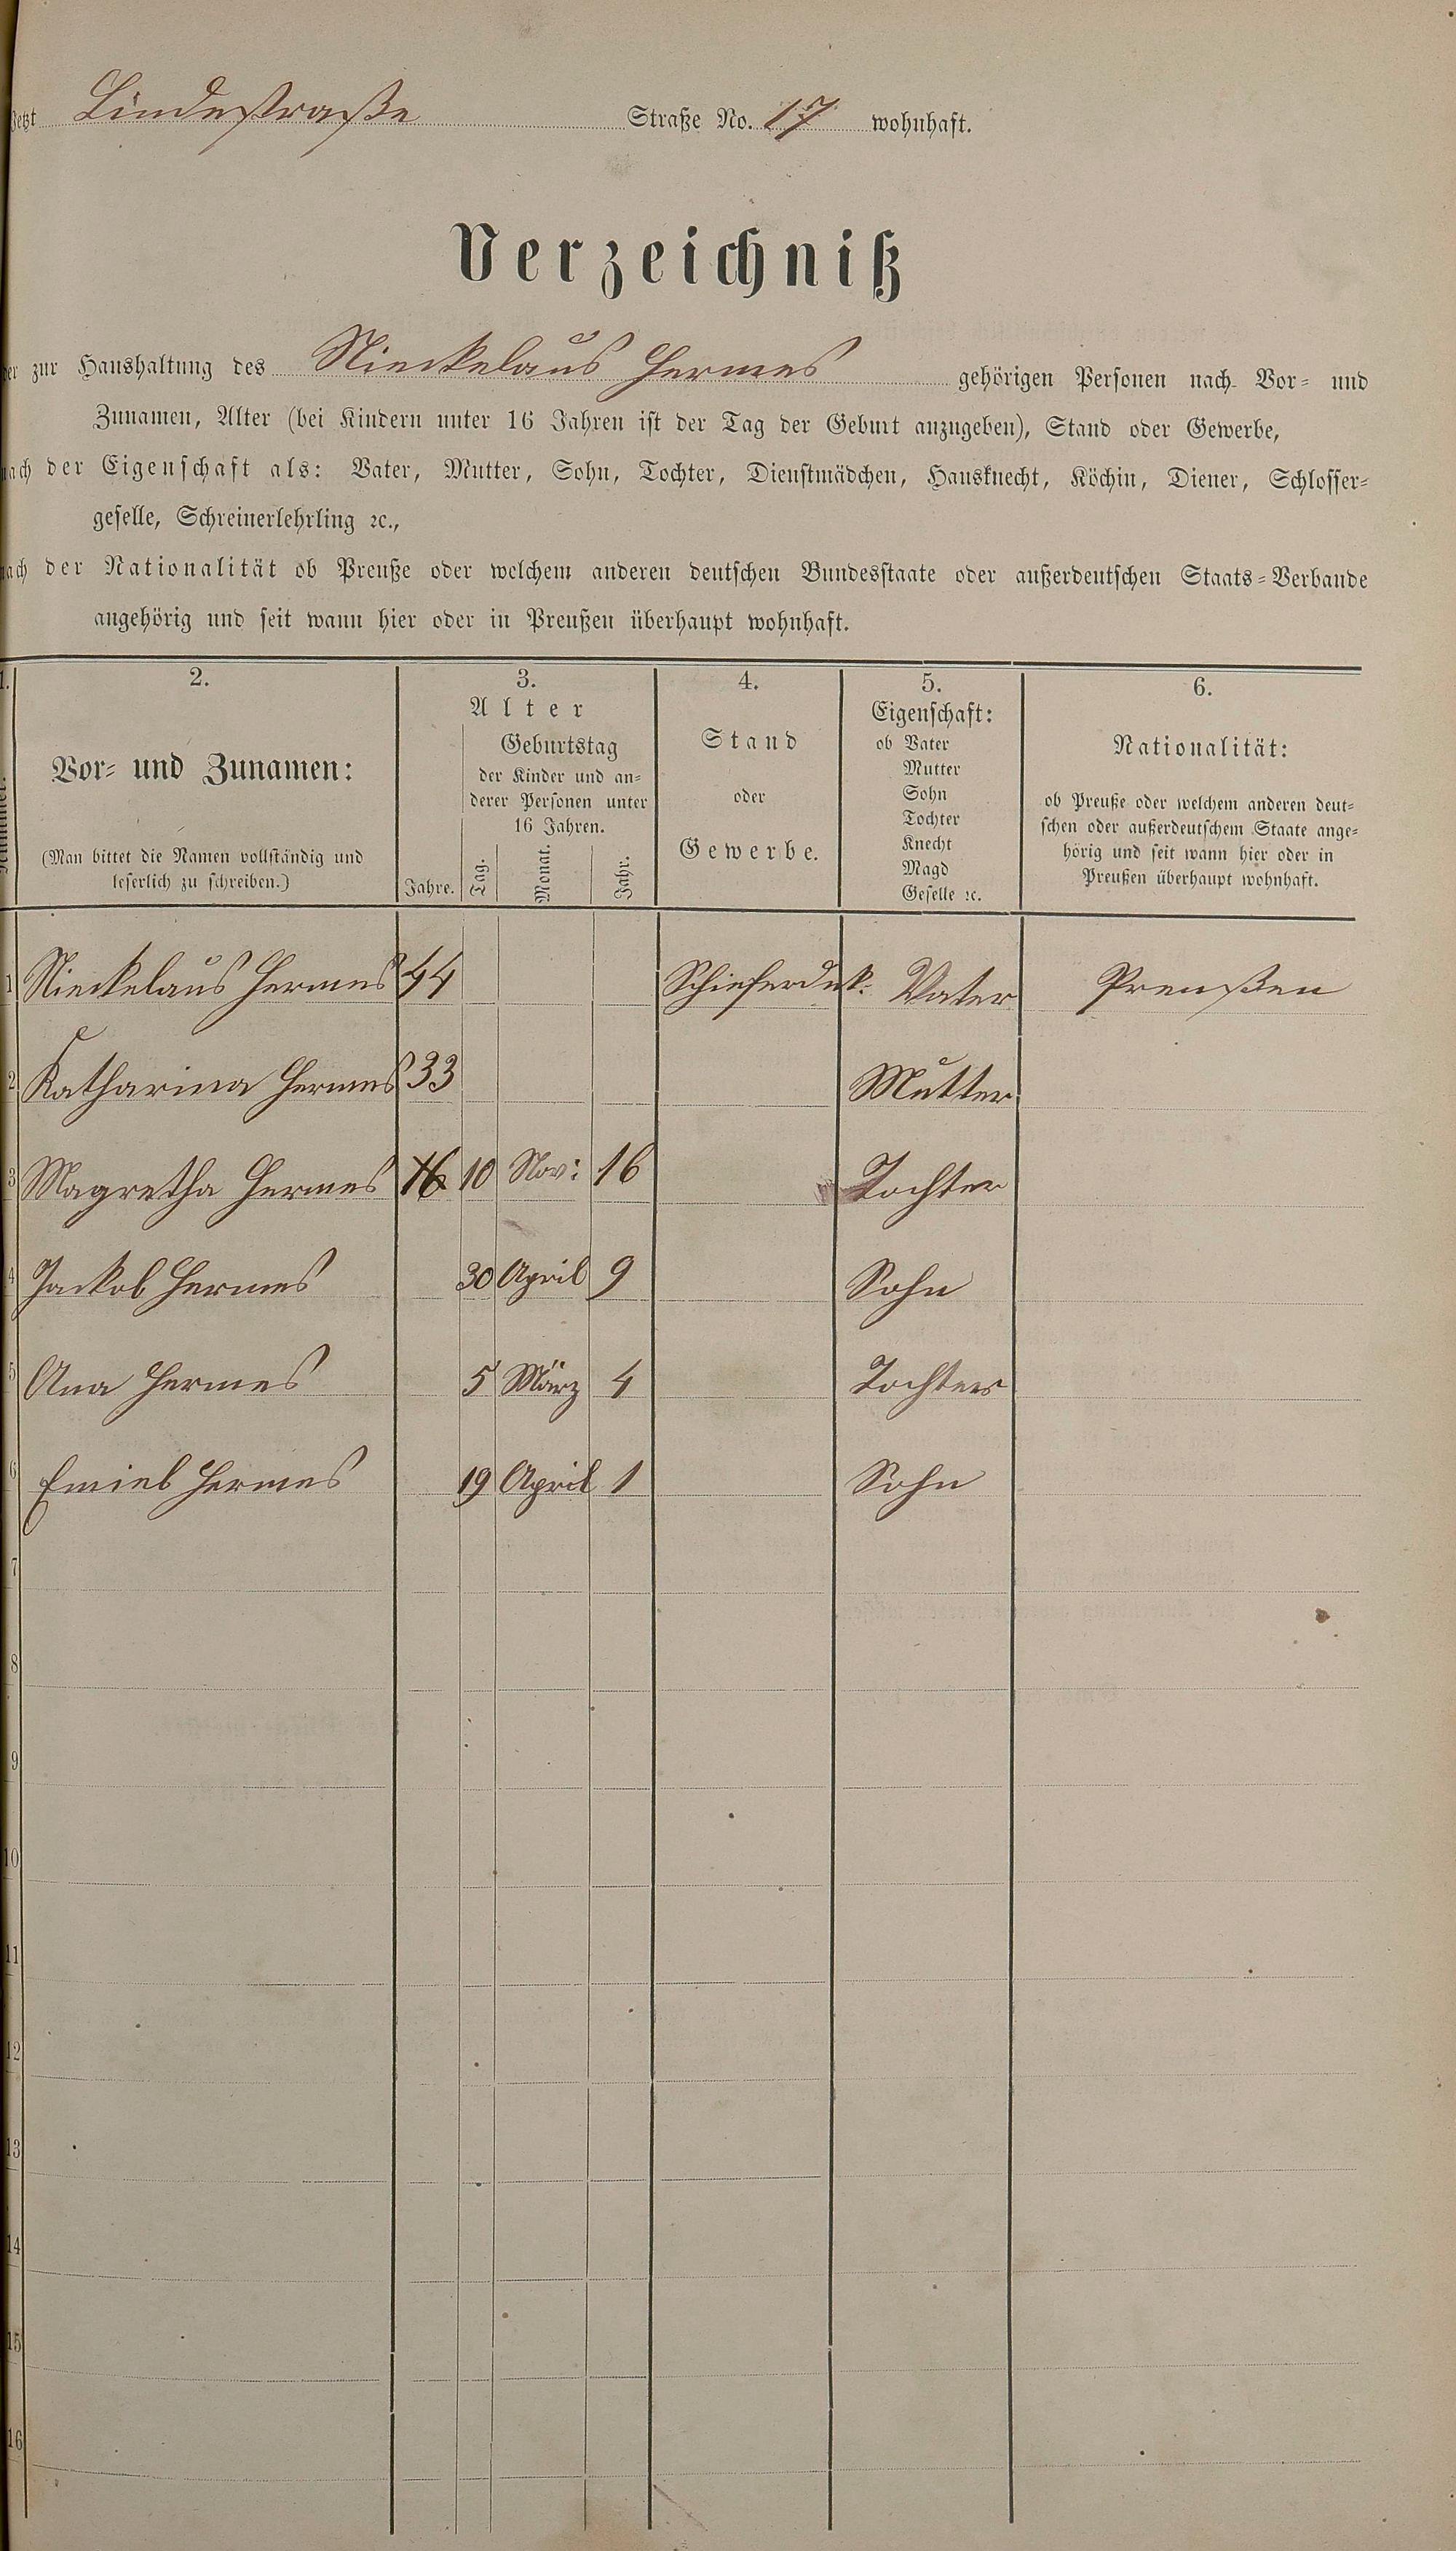 Jetzt Lindestraße Straße No. 17 wohnhaft.
Verzeichniß
der zur Haushaltung des Nieckelaus Hermes gehörigen Personen nach Vor- und
Zunamen, Alter (bei Kindern unter 16 Jahren ist der Tag der Geburt anzugeben), Stand oder Gewerbe,
nach der Eigenschaft als: Vater, Mutter, Sohn, Tochter, Dienstmädchen, Hausknecht, Köchin, Diener, Schlosser-
geselle, Schreinerlehrling ꝛc.,
nach der Nationalität ob Preuße oder welchem anderen deutschen Bundesstaate oder außerdeutschen Staats-Verbande
angehörig und seit wann hier oder in Preußen überhaupt wohnhaft.
1. Nummer.
2. Vor- und Zunamen:
(Man bittet die Namen vollständig und
leserlich zu schreiben.)
3. Alter
Jahre.
Geburtstag
der Kinder und an-
derer Personen unter
16 Jahren.
Tag. Monat. Jahr.
4. Stand
oder
Gewerbe.
5. Eigenschaft:
ob Vater
Mutter
Sohn
Tochter
Knecht
Magd
Geselle ꝛc.
6. Nationalität:
ob Preuße oder welchem anderen deut-
schen oder außerdeutschem Staate ange-
hörig und seit wann hier oder in
Preußen überhaupt wohnhaft.
1 Nieckelaus Hermes 44 Schieferdek. Vater Preußen
2 Katharina Hermes 33 Mutter
3 Magretha Hermes 16 10 Nov: 16 Tochter
4 Jackob Hermes 30 April 9 Sohn
5 Ana Hermes 5 März 4 Tochter
6 Emiel Hermes 19 April 1 Sohn
7
8
9
10
11
12
13
14
15
16